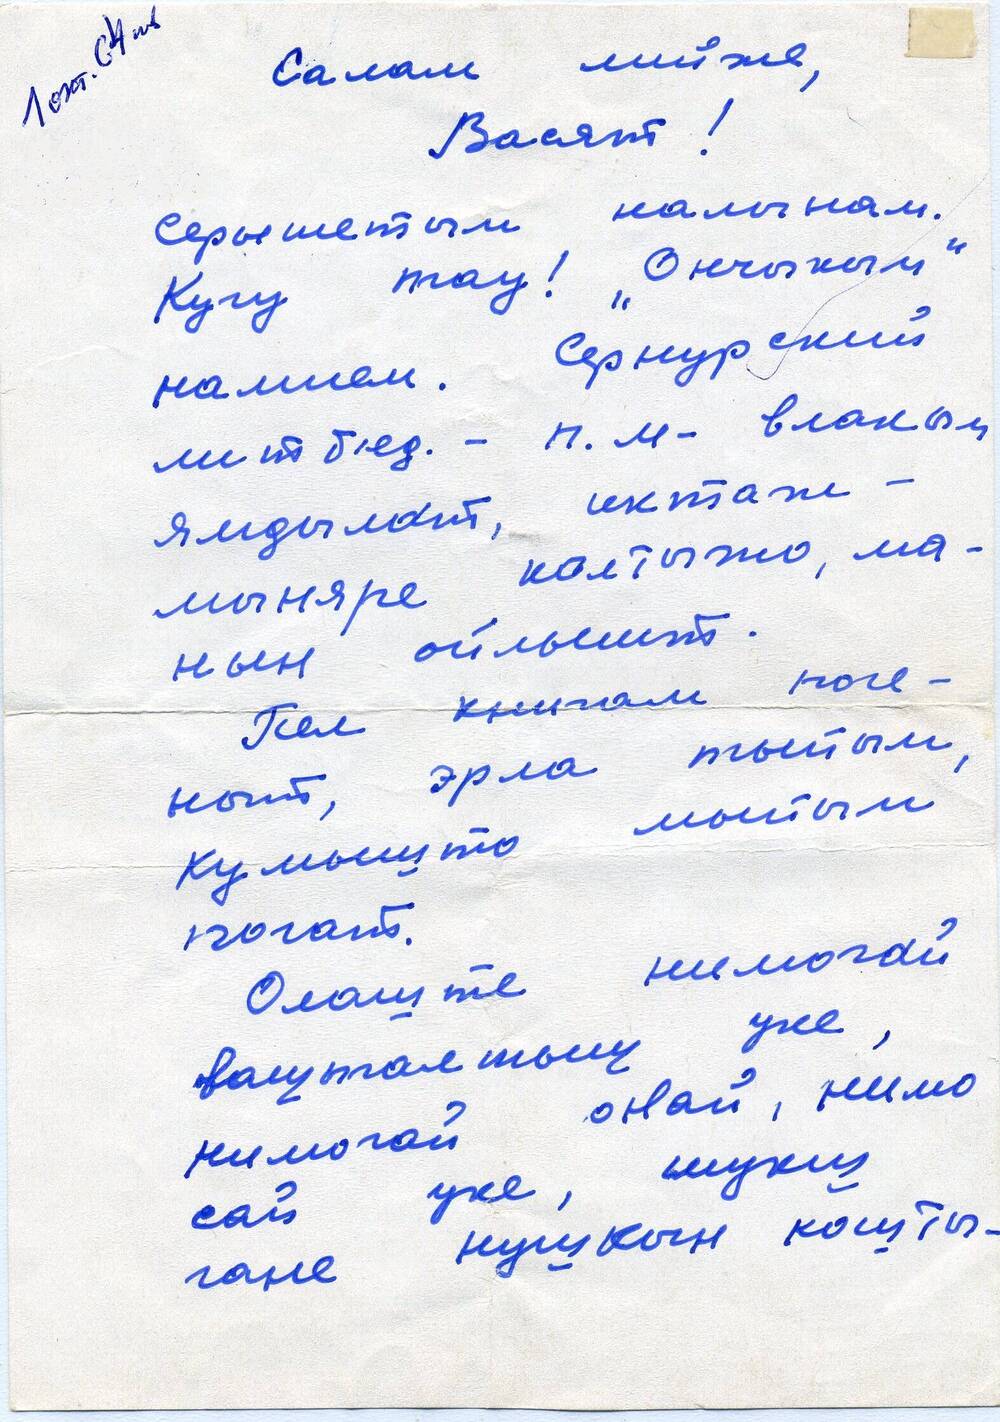 1 окт. 64 г.
Салам лийже,
Васят!
Серышетым налынам.
Кугу тау! „Ончыкым“
налнем. Сернурский
литбюд. - п.м- влакым
ямдылат, иктаж -
мыняре колтыжо, ма-
нын ойлышт.
Пел книгам поге-
ныт, эрла тыйым,
кумышто мыйым
погат.
Олаште нимогай
вашталтыш уке,
нимогай онай, нимо
сай уке, шукш
гане нушкын кошты-